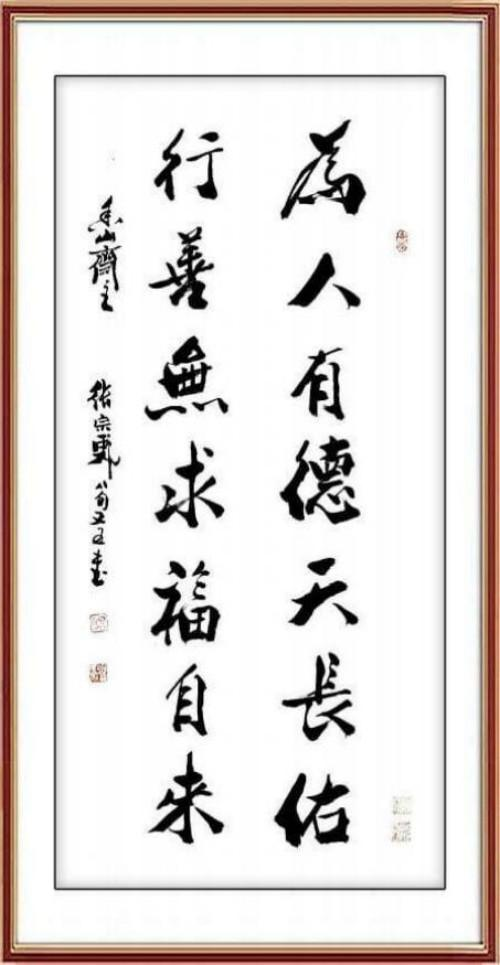 為人有德天長佑
行善無求福自來
香山齋主
張宗彪八旬又五書